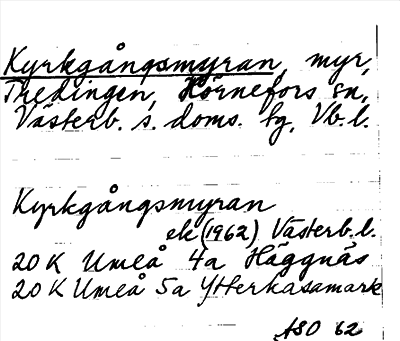 Kyrkgångsmyran, myr,
Tredingen, Hörnefors sn,
Västerb. s. doms. fg, Vb. l.
Kyrkgångsmyran
ek (1962) Västerb. l.
20 K Umeå 4a Häggnäs
20 K Umeå 5a Ytterkasamark
ASO 62